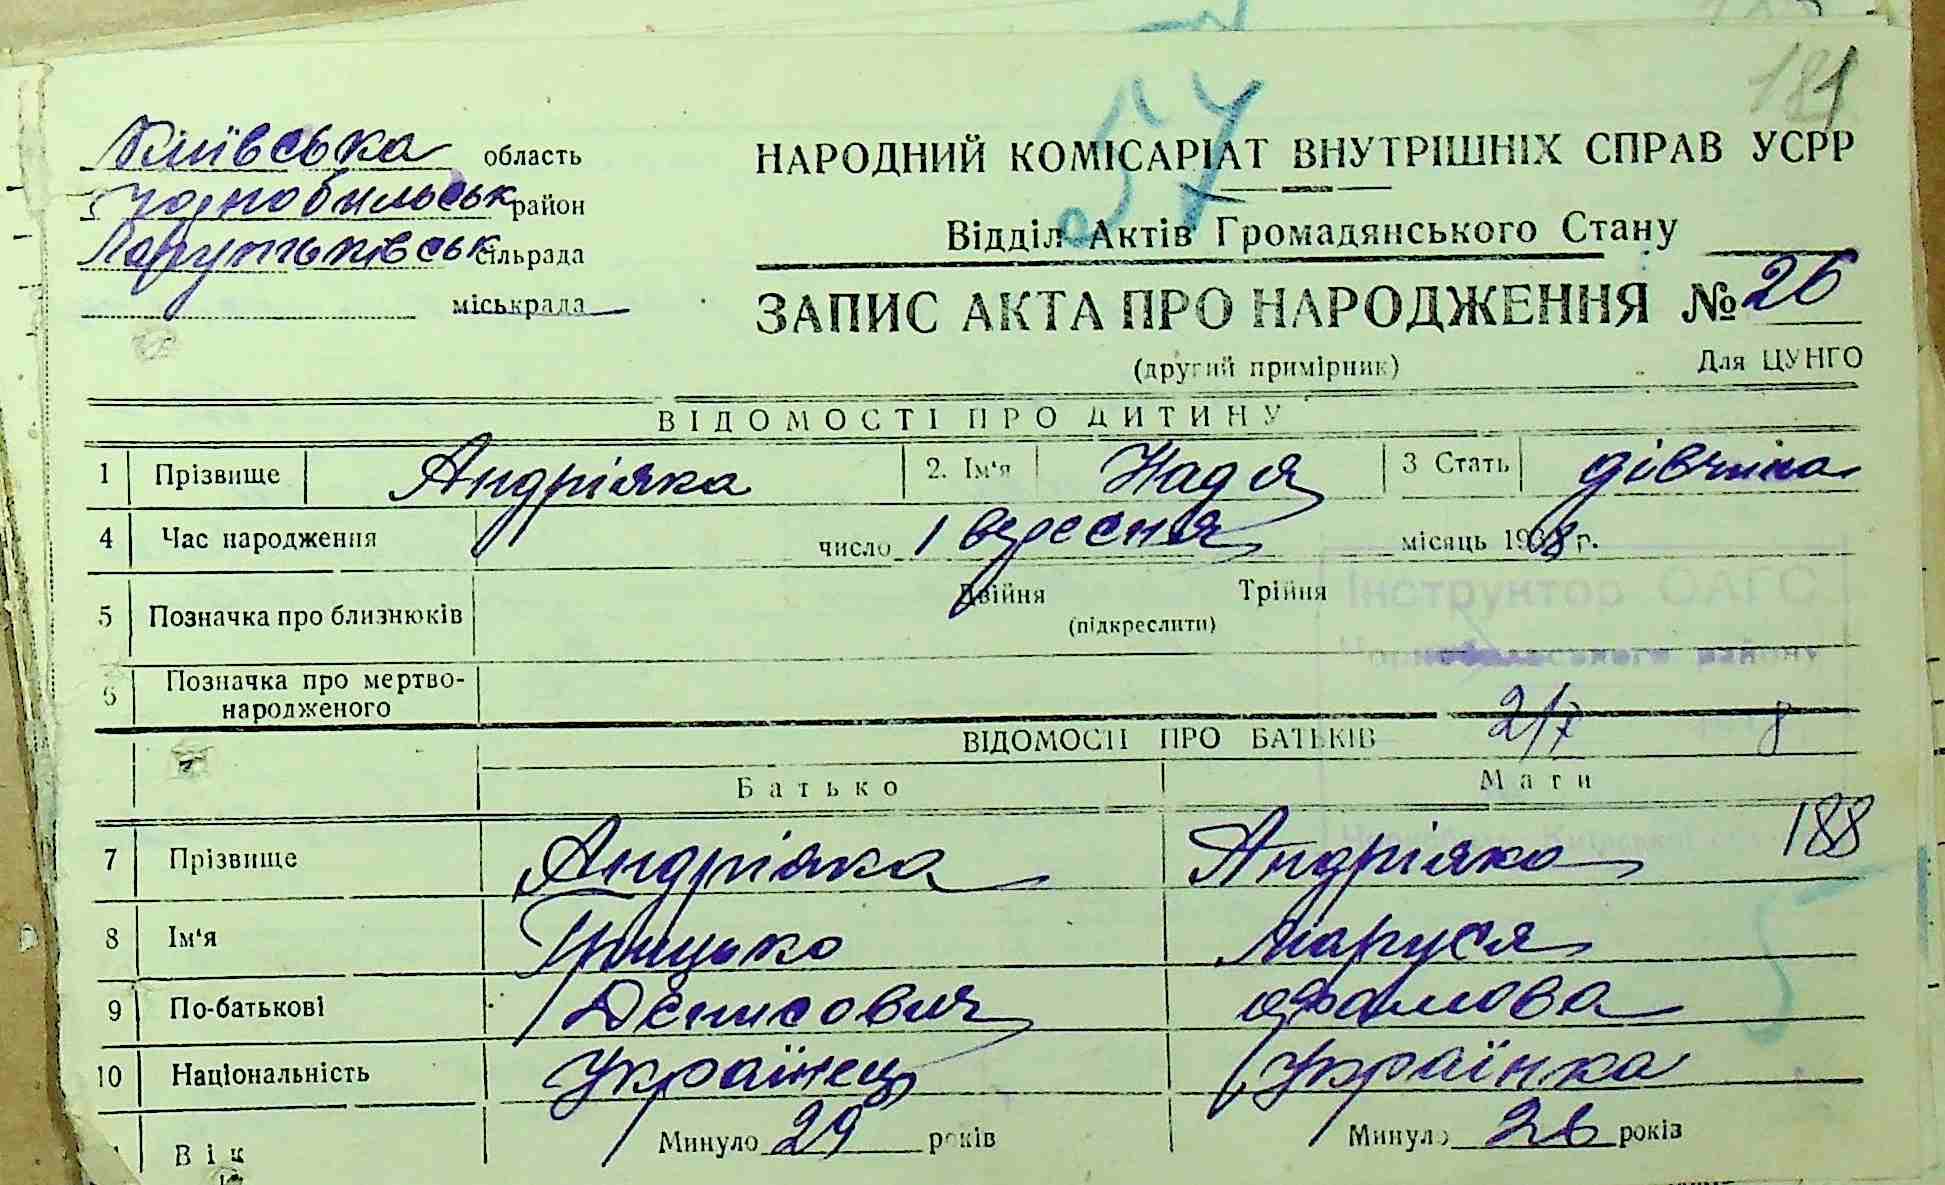 181
57
Київська область
НАРОДНИЙ КОМІСАРІАТ ВНУТРІШНІХ СПРАВ УСРР
Чорнобильськ район
Відділ Актів Громадянського Стану
сільрада
міськрада
ЗАПИС АКТА ПРО НАРОДЖЕННЯ № 26
(другий примірник) Для ЦУНГО
ВІДОМОСТІ ПРО ДИТИНУ
1 Прізвище Андріяка 2. Ім'я Надя 3 Стать дівчина
4 Час народження число 1 вересня місяць 1938 г.
5 Позначка про близнюків Двійня Трійня
(підкреслити)
Інструктор ОАГС
Чорнобильського району
6 Позначка про мертво-
народженого
2/X 8
ВІДОМОСТІ ПРО БАТЬКІВ
Батько Мати
188
7 Прізвище Андріяка Андріяка
8 Ім'я Грицько Маруся
9 По-батькові Денисович
10 Національність Українець Українка
Вік Минуло 29 років Минуло 26 років